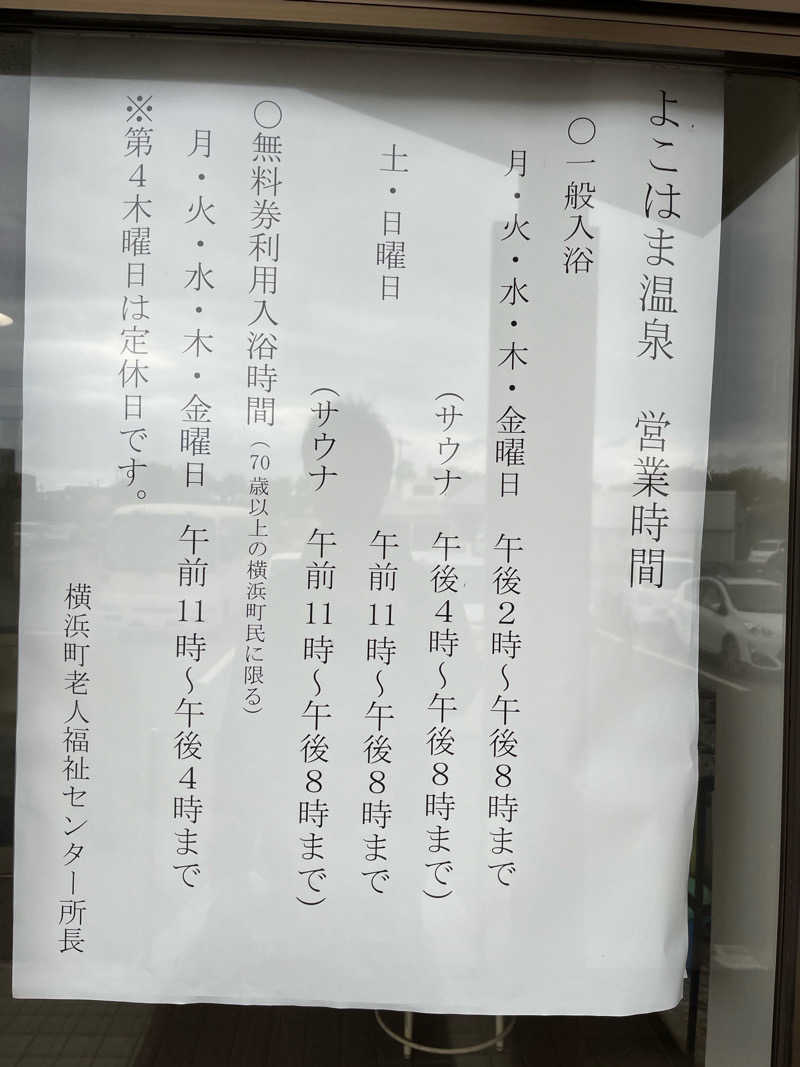 よこはま温泉　営業時間
〇一般入浴
月・火・水・木・金曜日　午後２時～午後８時まで
（サウナ　午後４時～午後８時まで）
土・日曜日　午前11時～午後８時まで
（サウナ　午前11時～午後８時まで）
〇無料券利用入浴時間（70歳以上の横浜町民に限る）
月・火・水・木・金曜日　午前11時～午後４時まで
※第４木曜日は定休日です。
横浜町老人福祉センター所長